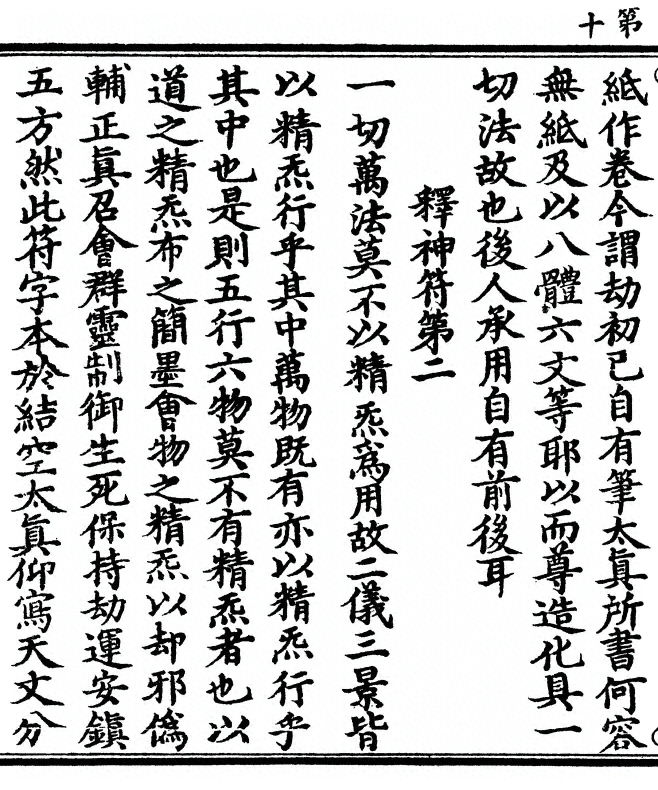 第十
紙作卷今謂劫初已自有筆太眞所書何容
無紙及以八體六文等耶以而尊造化具一
切法故也後人承用自有前後耳
釋神符第二
一切萬法莫不以精炁爲用故二儀三景皆
以精炁行乎其中萬物既有亦以精炁行乎
其中也是則五行六物莫不有精炁者也以
道之精炁布之簡墨會物之精炁以却邪僞
輔正眞召會群靈制御生死保持劫運安鎮
五方然此符字本於結空太眞仰寫天文分